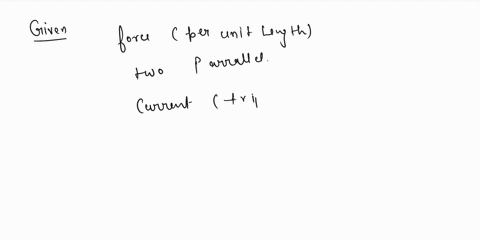 Given force (per unit length)
two parrallel.
Current (tri